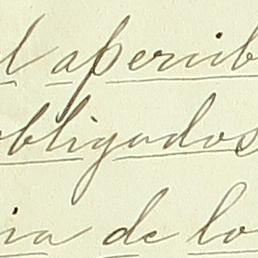 l apercib
obligados
ia de lo